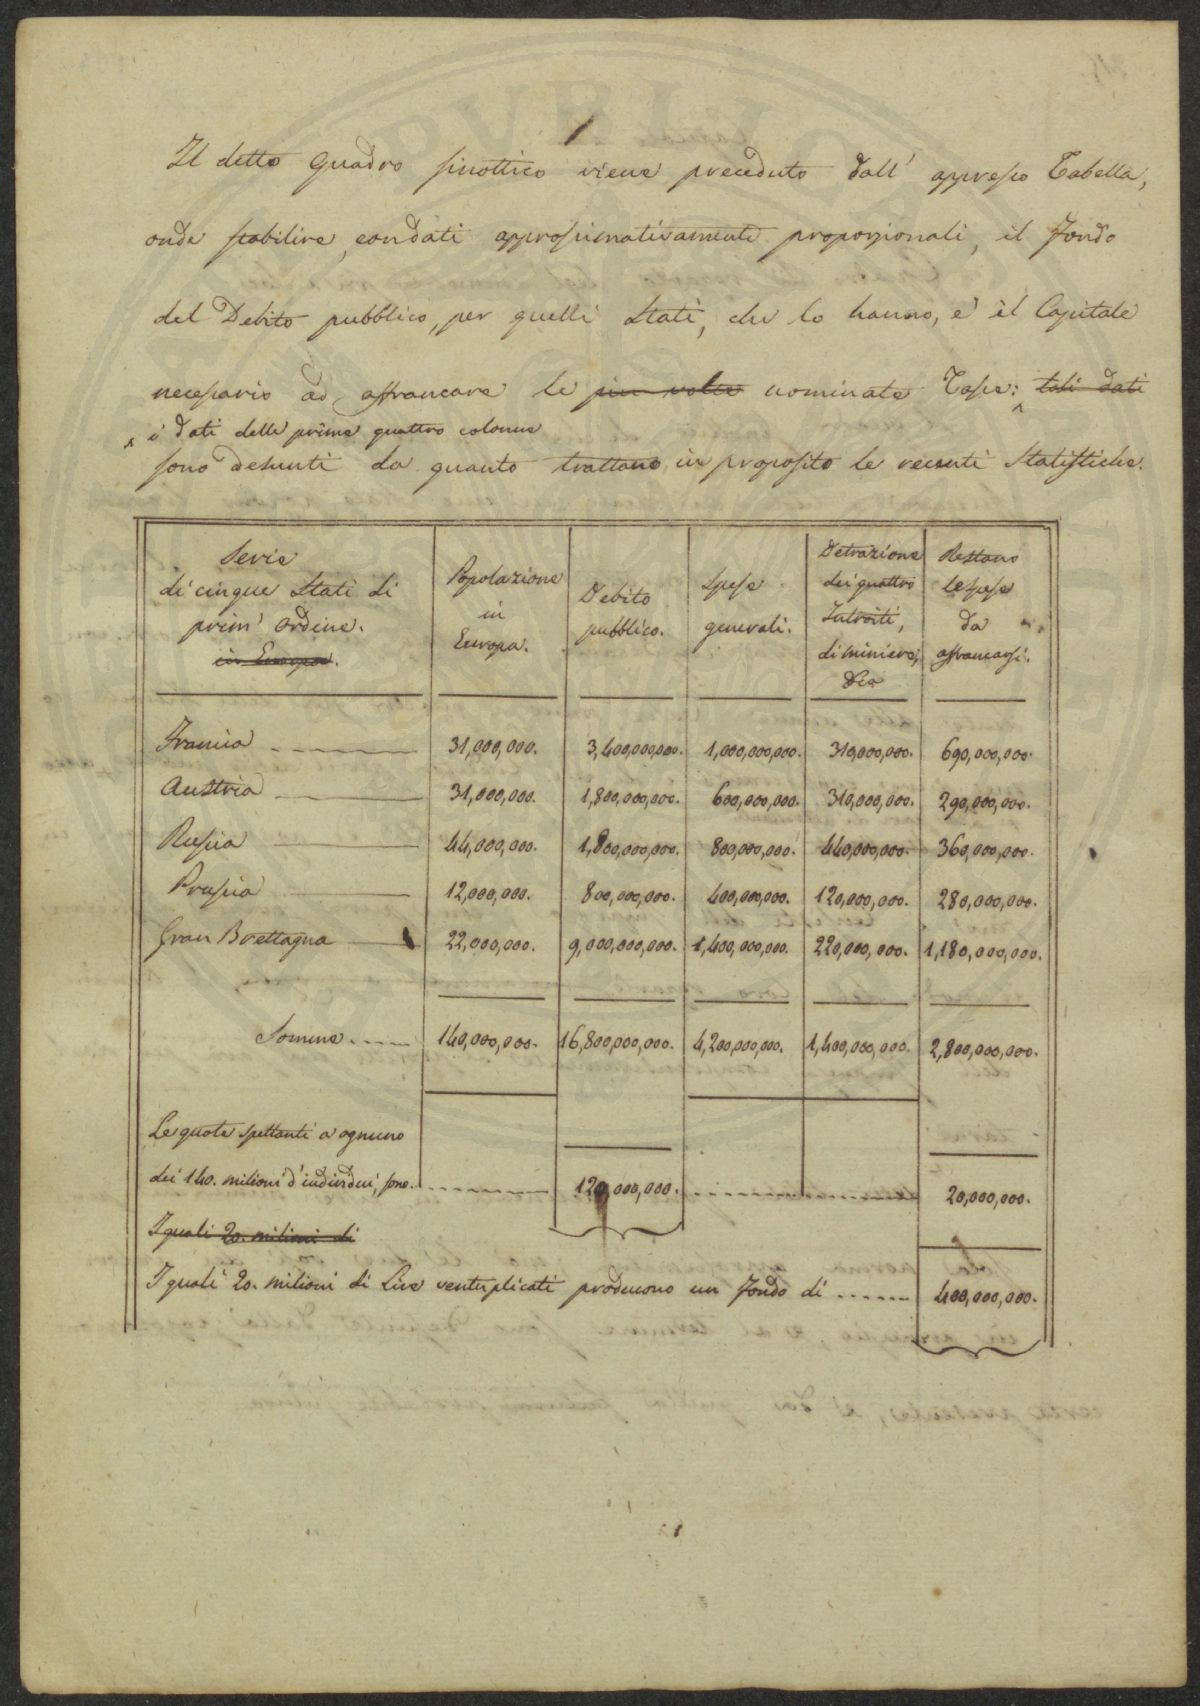 Il detto quadro sinottico viene preceduto dall' appresso Tabella,
onde stabilire, con dati approssimativamente proporzionali, il Fondo
del Debito pubblico, per quelli Stati, che lo hanno, e il Capitale
necessario ad affrancare le piu volte nominate Tasse: tali dati
i dati delle prime quattro colonne
sono desunti da quanto trattano in proposito le recenti Statistiche.
Serie
di cinque Stati di
prim' ordine.
in Europa.
Popolazione
in
Europa.
Debito
pubblico.
Spese
generali.
Detrazione
dei quattro
Introiti,
di miniera;
Dea
Restano
le spese
da
affrancarsi.
Francia 31,000,000. 3,400,000,000. 1,000,000,000. 310,000,000. 690,000,000.
Austria 31,000,000. 1,800,000,000. 600,000,000. 310,000,000. 290,000,000.
Russia 44,000,000. 1,800,000,000. 800,000,000. 440,000,000. 360,000,000.
Prussia 12,000,000. 800,000,000. 400,000,000. 120,000,000. 280,000,000.
Gran Brettagna 22,000,000. 9,000,000,000. 1,400,000,000. 220,000,000. 1,180,000,000.
Somme 140,000,000. 16,800,000,000. 4,200,000,000. 1,400,000,000. 2,800,000,000.
Le quote spettanti a ognuno
dei 140. milioni d'individui, sono 120,000,000. 20,000,000.
I quali 20. milioni di
I quali 20. milioni di Lire ventuplicati producono un Fondo di 400,000,000.